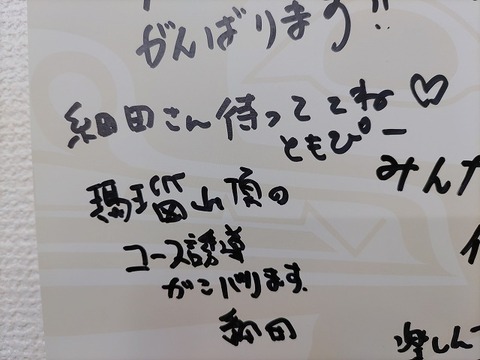 がんばります!!
細田さん待っててね♡
ともぴー
みんな
瑪瑙山頂の
コース誘導
がんバります。
和田
楽しんで